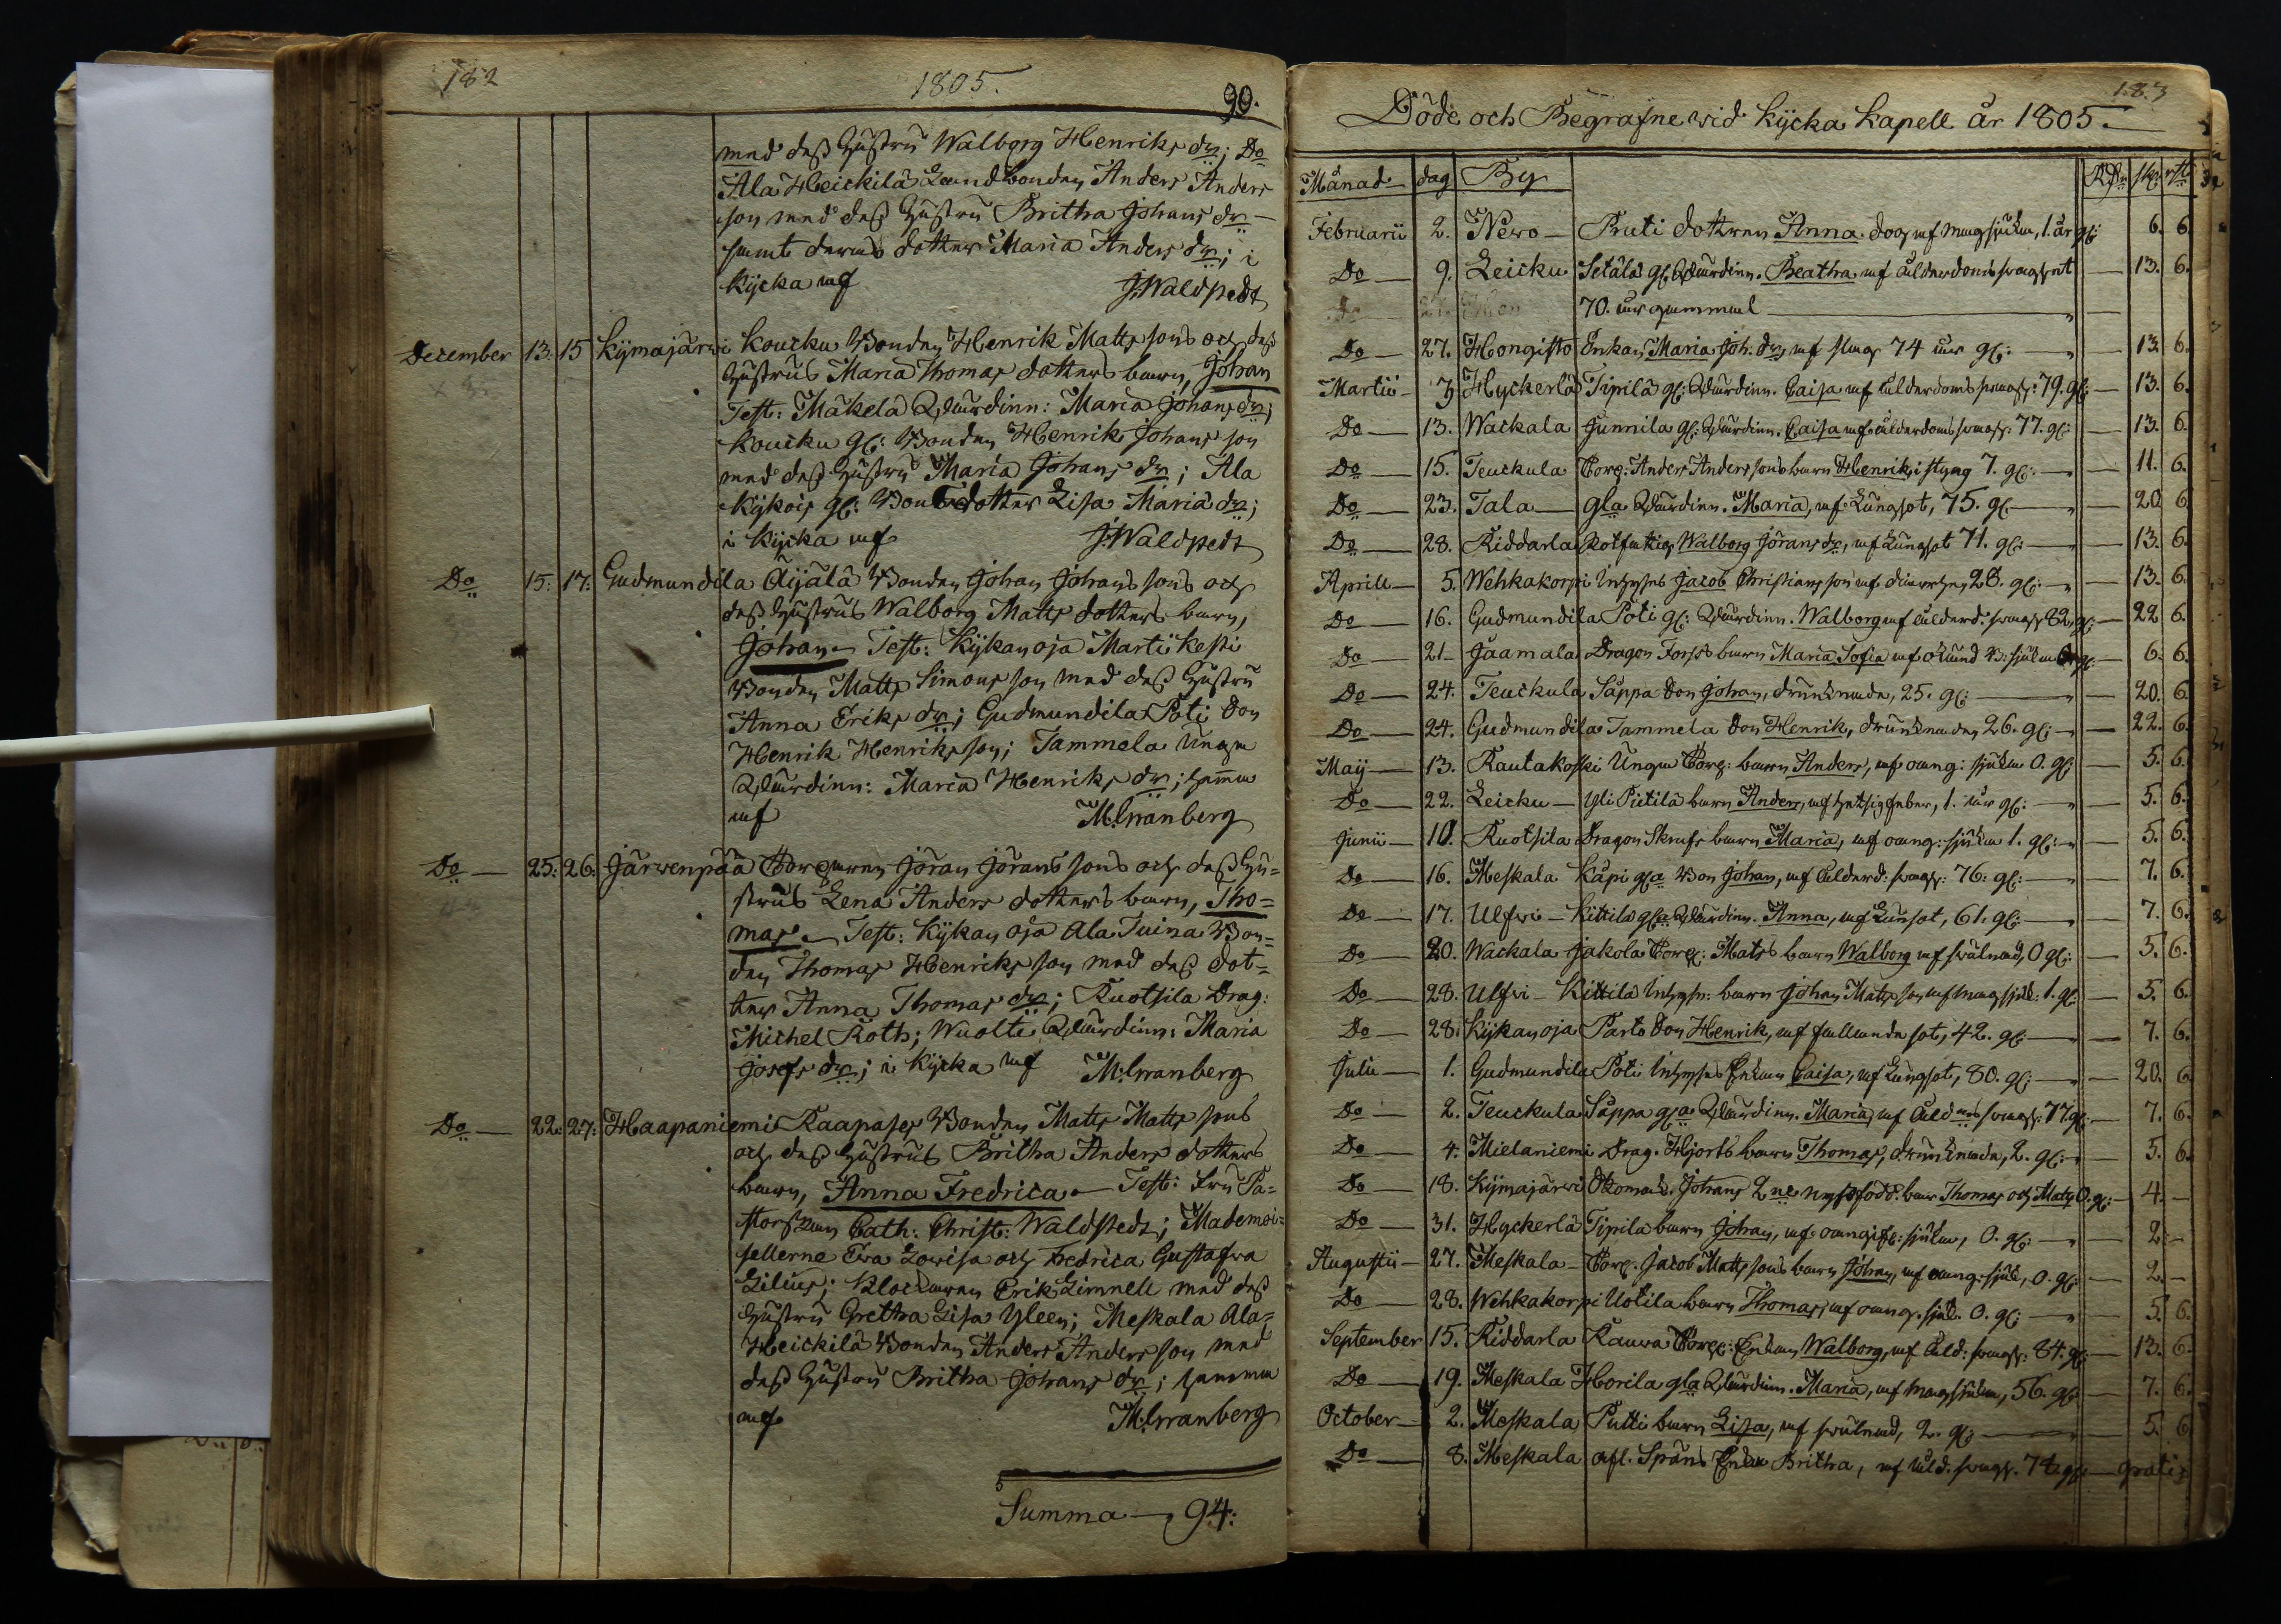 182
1805.
90.
med dess Hustru Walborg Henriks dr; Do
Ala Heickilä Landbonden Anders Anders
son med dess Hustru Britha Johans dr
samt deras dotter Maria Anders dr; i
Kycka af J: Waldstedt
December 13. 15 Kijmajärwi Koucku Bonden Henrik Matts sons och dess
Hustrus Maria Thomas dotters barn, Johan
Test: Mäkelä Wärdinn: Maria Johans dr;
Koucku gl: Bonden Henrik Johans son
med dess Hustru Maria Johans dr; Ala
Kykois gl: Bondedotter Lisa Maria dr;
i Kycka af J: Waldstedt
Do 15. 17. Gudmundila Äijälä Bonden Johan Johans sons och
dess Hustrus Walborg Matts dotters barn,
Johan. Test: Kykänoja Marti Kesti
Bonden Matts Simons son med dess Hustru
Anna Eriks dr; Gudmundila Poti Don
Henrik Henriks son; Tammela unga
Wärdinn: Maria Henriks dr; hemma
af M: Granberg
Do 25: 26: Järwenpää Torparen Jöran Jörans sons och dess Hu=
strus Lena Anders dotters barn, Tho=
mas. Test: Kykän oja Ala Tuina Bon=
den Thomas Henriks son med dess dot=
ter Anna Thomas dr; Ruotsila Drag:
Michel Roth; Wuolte Wärdinn: Maria
Josefs dr; i Kycka af M: Granberg
Do 22: 27: Haapaniemi Raapases Bonden Matts Matts sons
och dess Hustrus Britha Anders dotters
barn, Anna Fredrica. Test: Fru Pa=
storskan Cath: Christ: Waldstedt; Mademoi=
sellerne Eva Lowisa och Fredrica Gustafva
Lilius; Klockaren Erik Limnell med dess
Hustru Gretha Lisa Yleen; Meskala Ala=
Heickilä Bonden Anders Anders son med
dess Hustru Britha Johans dr; hemma
af M: Granberg
Summa 94:
183
Döde och Begrafne wid Kycka Kapell år 1805.
Månad dag By Rdr sk: rst:
Februarii 2. Nero Ruti dottren Anna dog af magsjuka, 1. år gl: 6. 6.
Do 9. Leicku Setälä gl. Wärdinn. Beatha af ålderdoms swaghet 13. 6.
70. år gammal
Do 27. Hongisto Enkan Maria Joh: dr, af slag 74 år gl: 13. 6.
Martii 3 Hyckerlä Tipilä gl: Wärdinn. Caisa af ålderdoms swagh: 79. gl: 13. 6.
Do 13. Wackala Junnila gl: Wärdinn. Caisa af ålderdoms swagh: 77. gl: 13. 6.
Do 15. Teuckula Torp: Anders Anders sons barn Henrik, i styng 7. gl: 11. 6.
Do 23. Tala gla Wärdinn. Maria, af Lungsot, 75. gl. 20 6
Do 28. Riddarla Rotfattig Walborg Jörans dr, af Lungsot 71. gl: 13. 6.
Aprill 5. Wehkakorpi Inhyses Jacob Christians son af 28. gl: 13. 6.
Do 16. Gudmundila Poti gl: Wärdinn. Walborg af ålderd: swagh 82, gl: 22 6.
Do 21 Jaamala Dragon Forss barn Maria Sofia af okänd B: sjukdom gl: 6. 6.
Do 24. Teuckula Säppä Don Johan, drunknade, 25. gl: 20. 6
Do 24. Gudmundila Tammela Don Henrik, drunknade, 26. gl: 22. 6.
Maij 13. Rautakoski Unga Torp: barn Anders, af oang: sjukd 0. gl: 5. 6.
Do 22. Leicku Yli Pietilä barn Anders, af hetsig feber, 1. år gl: 5. 6.
Junii 10. Ruotsila Dragon Skrufs barn Maria, af oang: sjukd 1. gl: 5. 6.
Do 16. Meskala Käpi gla Bon Johan, af ålderd: swagh: 76: gl: 7. 6.
Do 17. Ulfwi Kittilä gla Wärdinn. Anna, af Lunsot, 61. gl: 7. 6.
Do 20. Wackala Jakola Torp: Mats barn Walborg af swulnad, 0 gl: 5. 6.
Do 28. Ulfwi Kittilä Inhyse: barn Johan Mats son af magsjuk: 1. gl: 5. 6.
Do 28. Kijkänoja Parto Don Henrik, af fallande sot, 42. gl: 7. 6.
Julii 1. Gudmundila Poti Inhyses Enkan Caisa, af Lungsot, 80. gl: 20. 6
Do 2. Teuckula Säppä gla Wärdinn. Maria, af åld: swagh: 77 gl. 7. 6.
Do 4. Mielaniemi Drag. Hjorts barn Thomas, drunknade, 2. gl: 5. 6.
Do 18. Kijmajärwi Okomak. Johans 2ne nyssfödd. barn Thomas och Mats, 0. gl: 4.
Do 31. Hyckerlä Tipilä barn Johan, af oangifv: sjukd, 0. gl: 2.
Augustii 27. Meskala Torp. Jacob Matts sons barn Johan, af oang: sjuk, 0. gl: 2.
Do 28. Wehkakorpi Uotila barn Thomas, af oang. sjuk. 0. gl: 5. 6.
September 15. Riddarla Kauwa Torp: Enkan Walborg, af åld: swagh: 84. gl: 13. 6.
Do 19. Meskala Horila gla Wärdinn. Maria, af magsjuka, 56. gl: 7. 6.
October 2. Meskala Putti barn Lisa, af swulnad, 2. gl: 5. 6
Do 8. Meskala afl. Späns Enka Britha, af åld. swagh. 74. gl: gratis